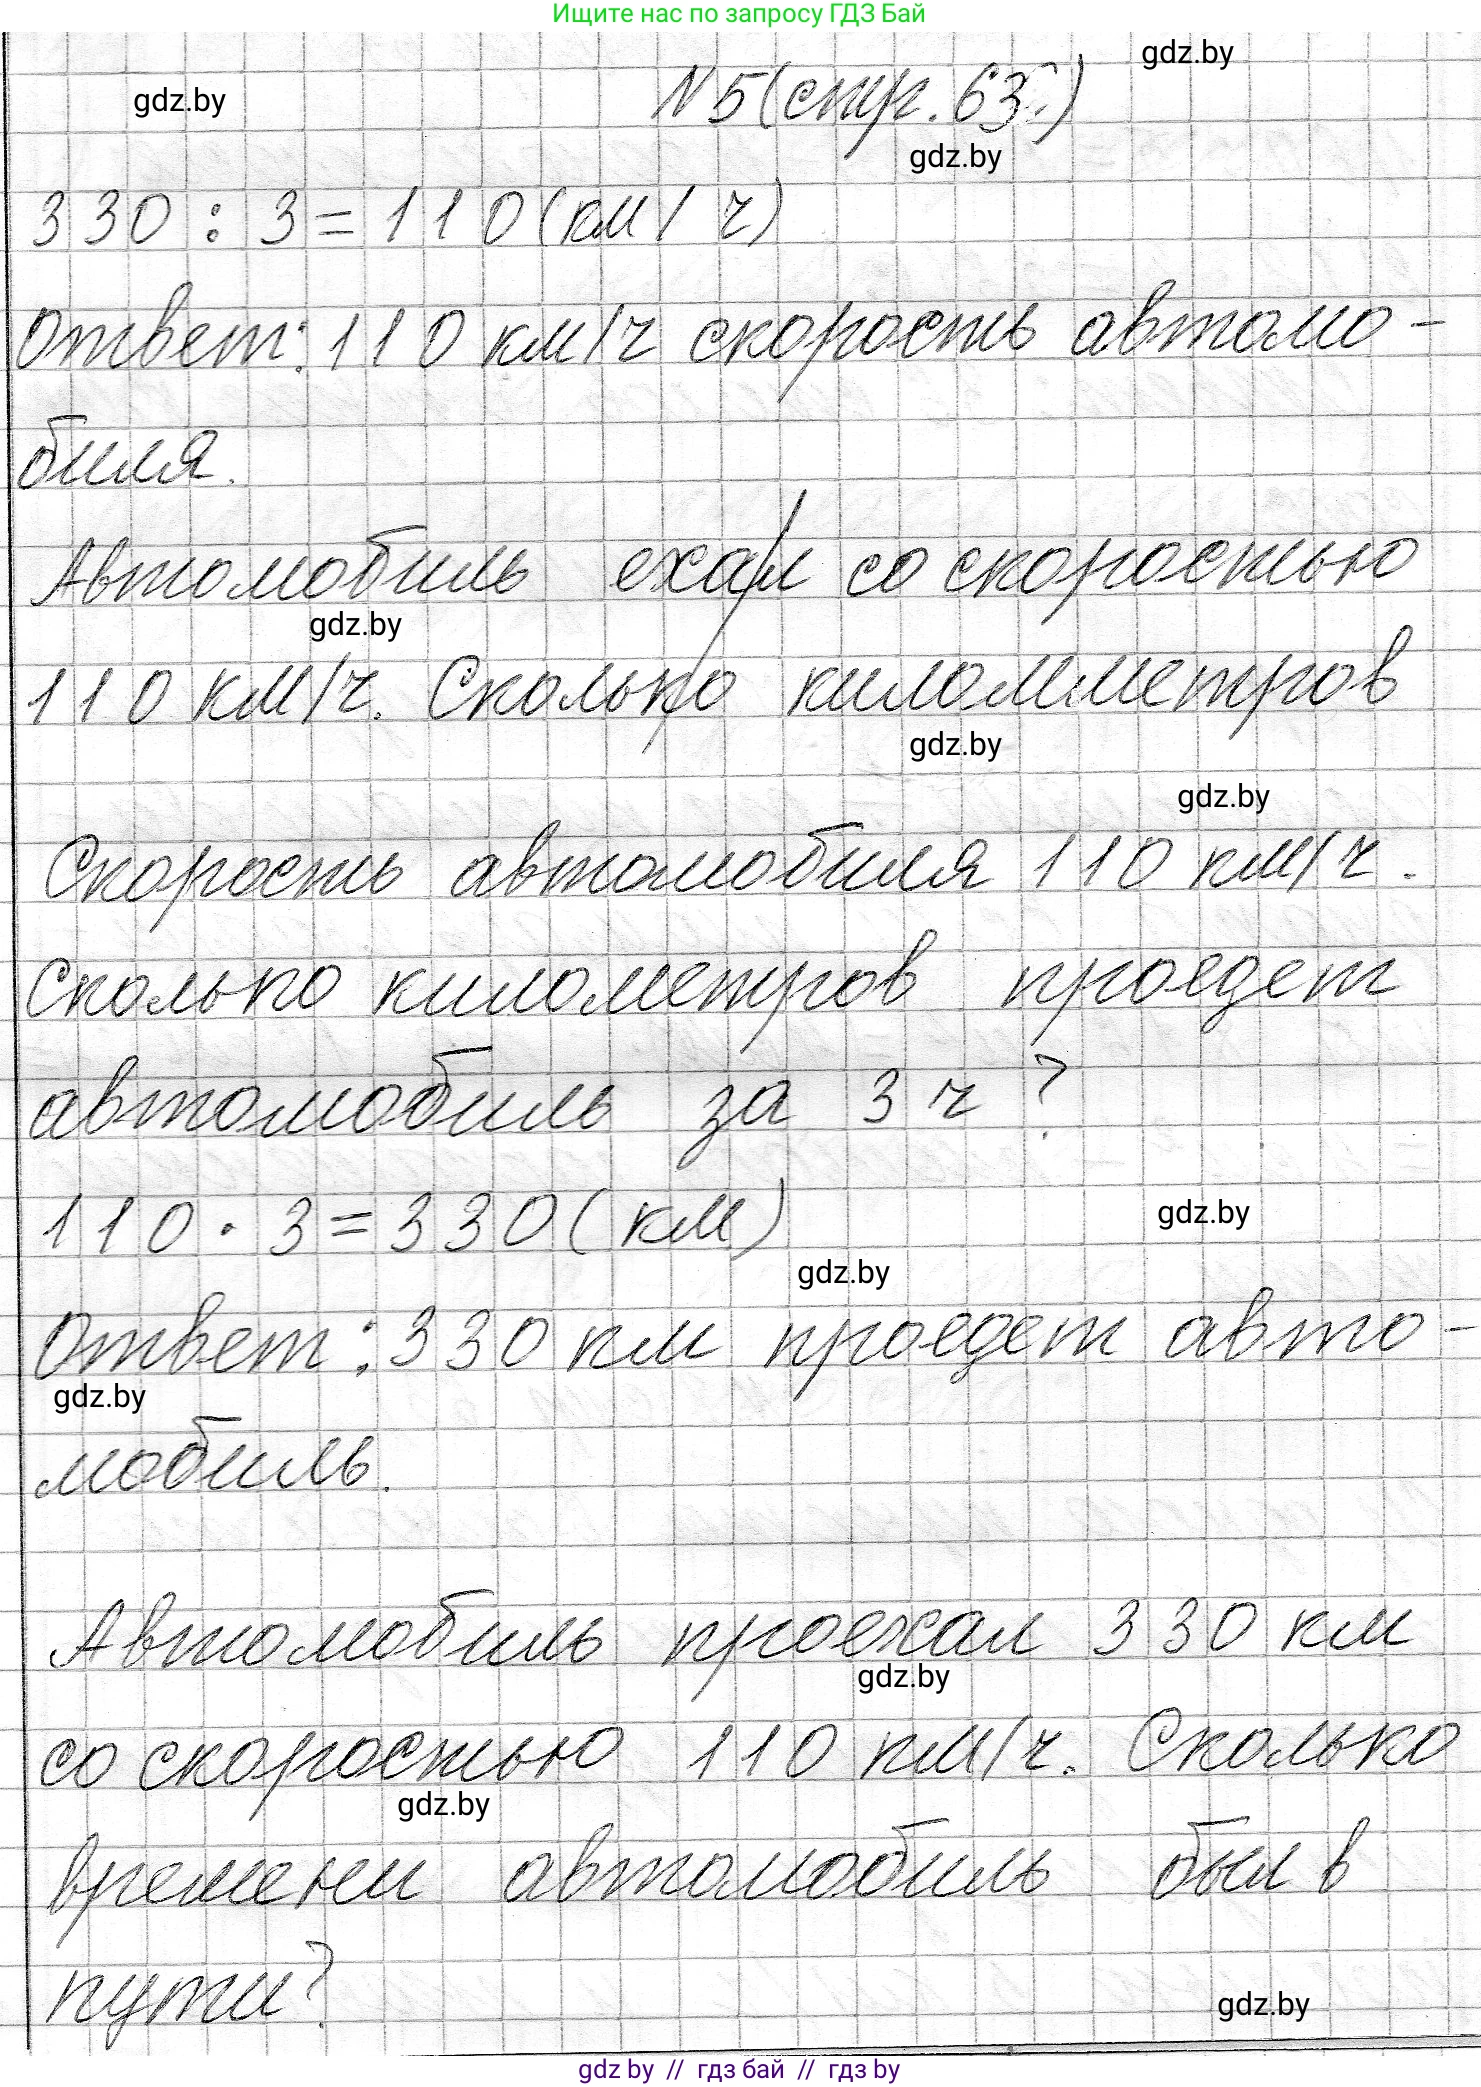 Ищите нас по запросу ГДЗ Бай
gdz.by
gdz.by
№5(стр. 63.)
gdz.by
330 : 3 = 110 (км/ч)
Ответ: 110 км/ч скорость автомо-
биля.
Автомобиль ехал со скоростью
gdz.by
110 км/ч. Сколько киломметров
gdz.by
gdz.by
Скорость автомобиля 110 км/ч.
Сколько километров проедет
автомобиль за 3 ч?
110 · 3 = 330 (км)
gdz.by
gdz.by
Ответ: 330 км проедет авто-
gdz.by
мобиль.
Автомобиль проехал 330 км
gdz.by
со скоростью 110 км/ч. Сколько
gdz.by
времени автомобиль был в
пути?
gdz.by
gdz.by // гдз бай // гдз by